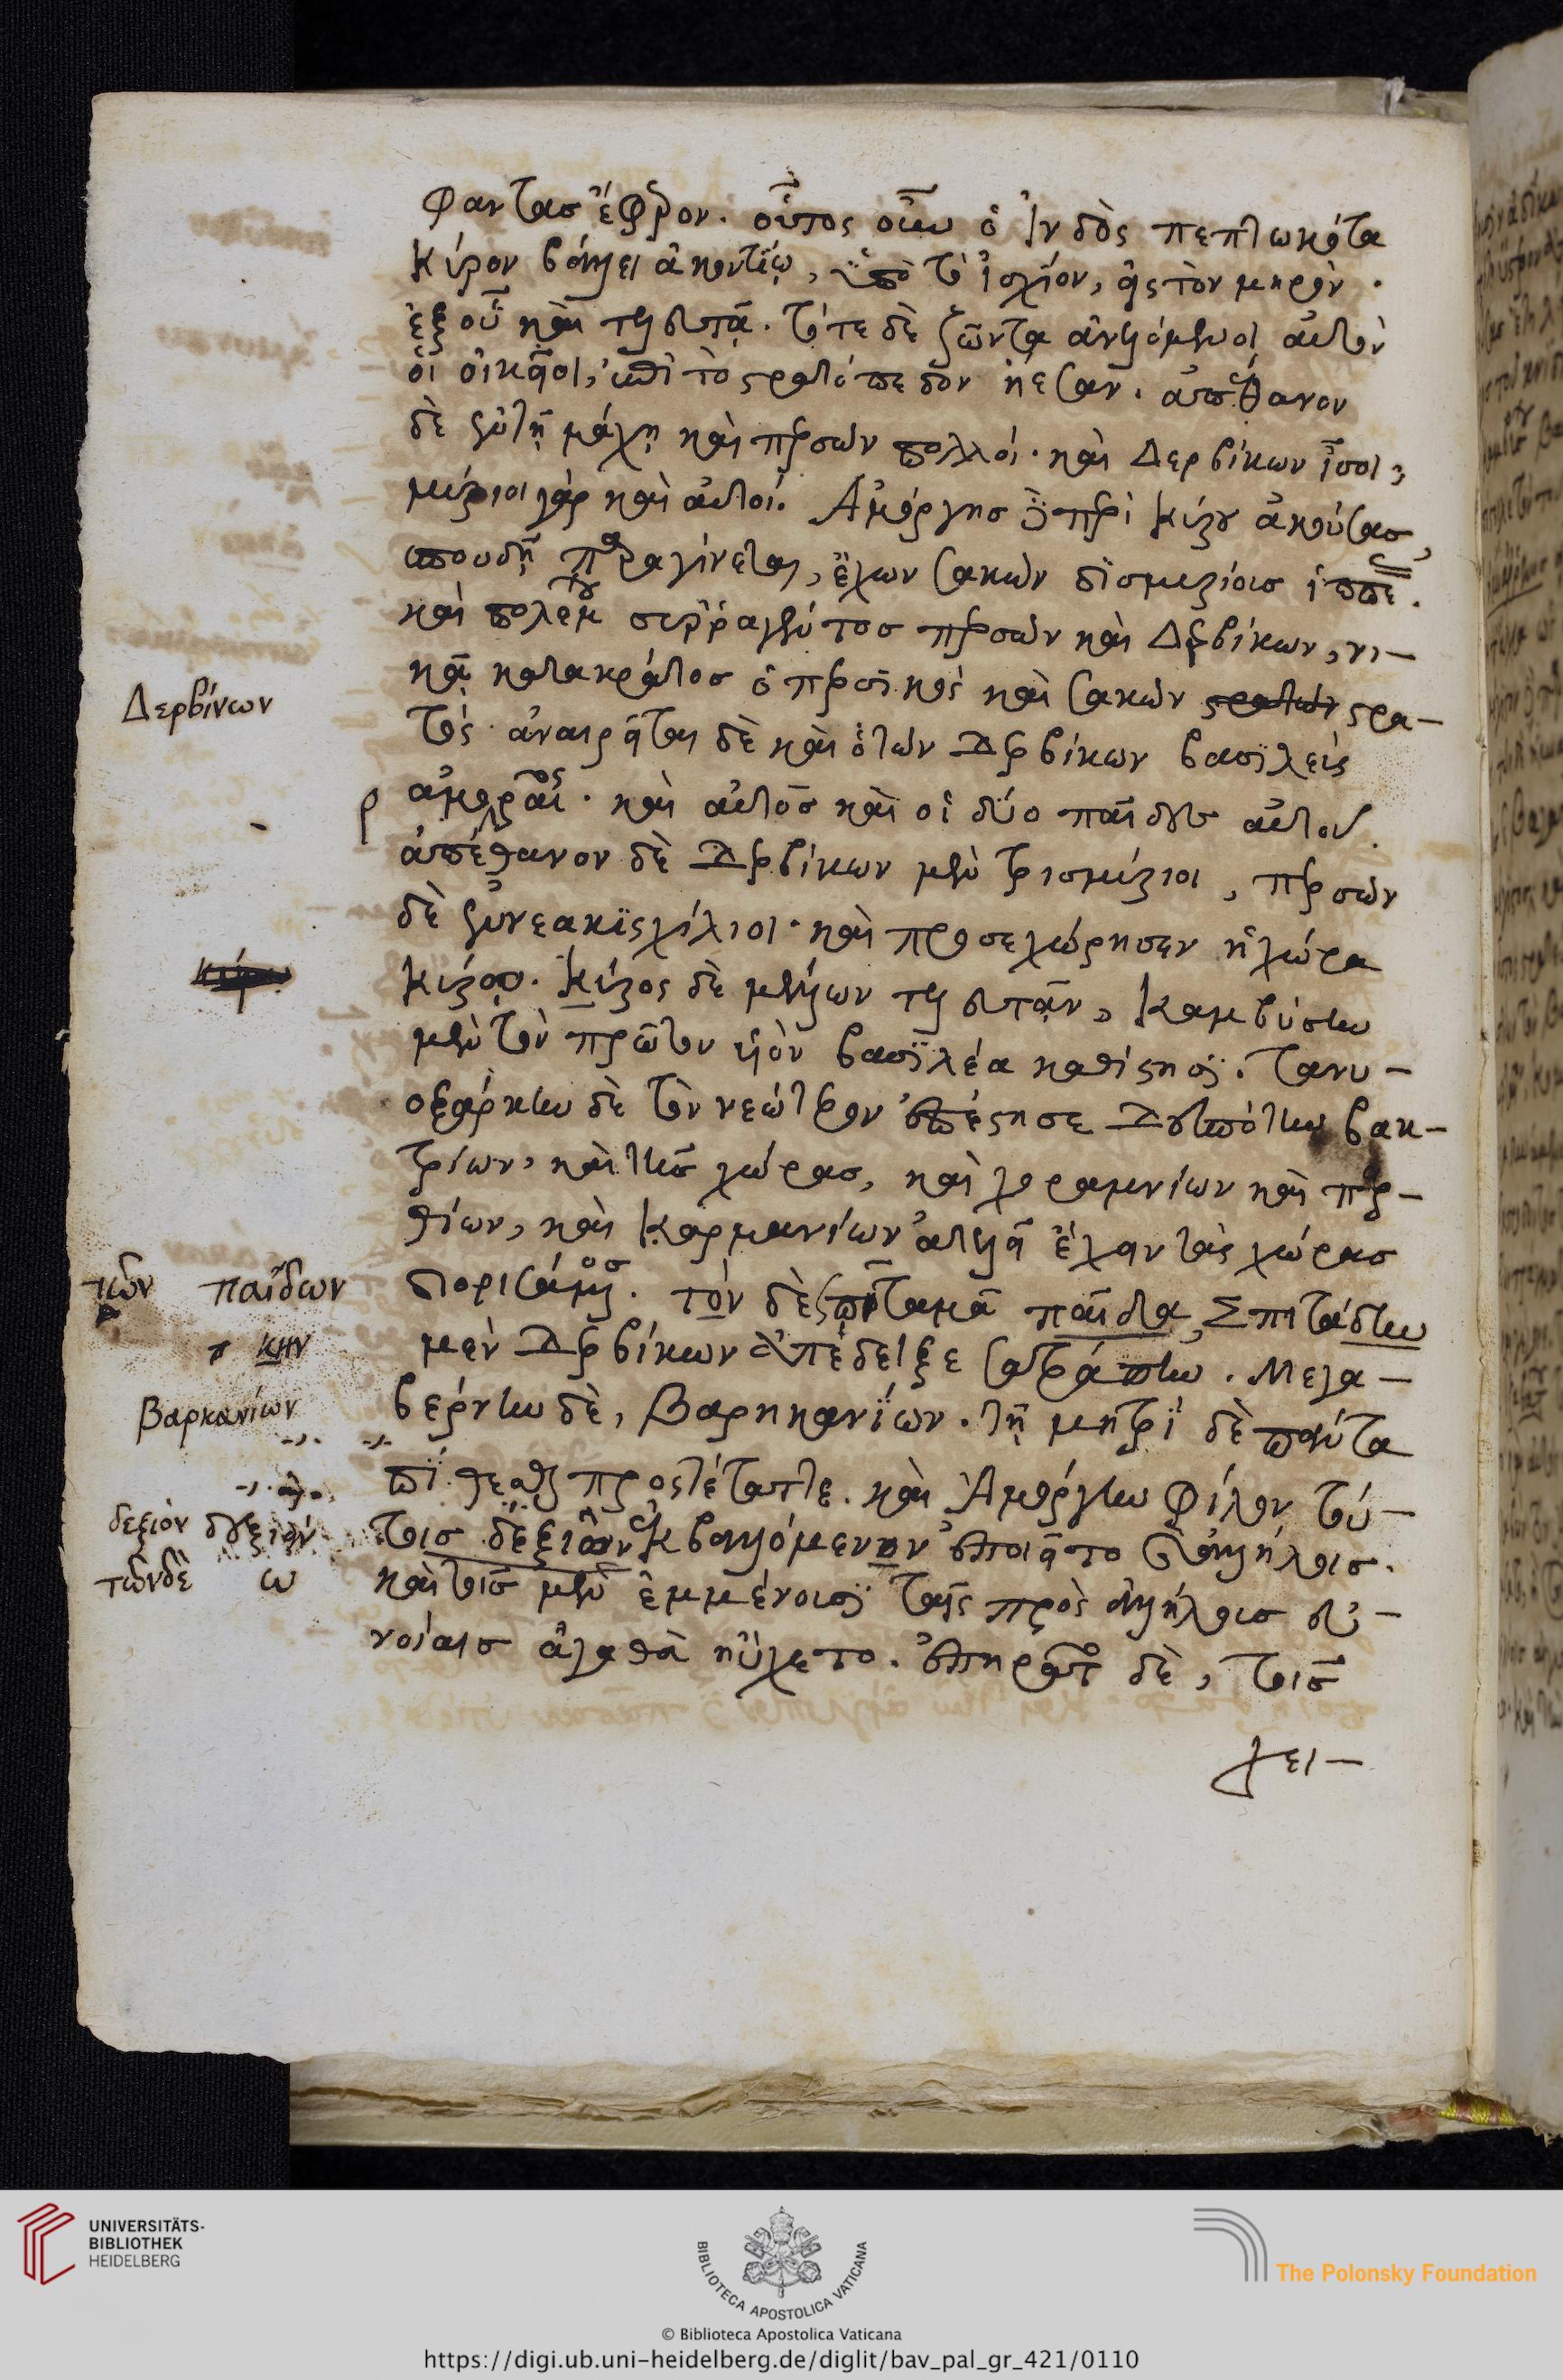 φαντας ἔφερον. οὗτος οὖν ὁ Ἰνδὸς πεπτωκότα
Κύρον βάλλει ἀκοντίῳ, ὑπὸ τὸ ἰσχίον, εἰς τὸν μηρὸν.
ἐξ οὗ καὶ τελευτᾷ. τότε δὲ ζῶντα ἀνελόμενοι αὐτὸν
οἱ οἰκεῖοι, ἐπὶ τὸ στρατόπεδον ᾔεσαν. ἀπέθανον
δὲ ἐν τῇ μάχῃ καὶ περσῶν πολλοί. καὶ Δερβίκων ἴσοι,
μύριοι γὰρ καὶ αὐτοί. Ἀμόργης δὲ περὶ Κύρου ἀκούσας,
σπουδῇ παραγίνεται, ἔχων σακῶν δισμυρίους ἱππεῖς.
καὶ πολέμου συρραγέντος περσῶν καὶ Δερβίκων, νι-
κᾷ κατακράτος ὁ περσικὸς καὶ σακῶν στρα-
Δερβίκων
τός. ἀναιρεῖται δὲ καὶ ὁ τῶν Δερβίκων βασιλεὺς
ἀμοραῖος. καὶ αὐτὸς καὶ οἱ δύο παῖδες αὐτοῦ.
ἀπέθανον δὲ Δερβίκων μὲν τρισμύριοι, περσῶν
δὲ ἐννεακισχίλιοι. καὶ προσεχώρησεν ἡ χώρα
Κύρῳ. Κύρος δὲ μέλλων τελευτᾶν, Καμβύσην
μὲν τὸν πρῶτον υἱὸν βασιλέα καθίστησι. Τανυ-
οξάρκην δὲ τὸν νεώτερον ἐπέστησε Δεσπότην βακ-
τρίων, καὶ τῆς χώρας, καὶ χοραμνίων καὶ παρ-
θίων, καὶ Καρμανίων ἀτελῆ ἔχειν τὰς χώρας
τῶν παῖδων
διορισάμενος. τὸν δὲ σπιταμᾶ παῖδα, Σπιτάδην
κην
μὲν Δερβίκων ἀπέδειξε σατράπην. Μεγα-
Βαρκανίων
βέρνην δὲ, Βαρκανίων. τῇ μητρὶ δὲ πάντα
πείθεσθαι προσέταττε. καὶ Ἀμόργην φίλον τού-
δεξιὸν
τοις δεξιῶν ἐκβαλλόμενον ἐποιεῖτο ἀλλήλοις.
τῶνδὲ ω
καὶ τοῖς μὲν ἐμμένουσι ταῖς πρὸς ἀλλήλους εὐ-
νοίαις ἀγαθὰ ηὔχετο. ἐπηρᾶτο δὲ, τοῖς
χει-
UNIVERSITÄTS-
BIBLIOTHEK
HEIDELBERG
BIBLIOTECA APOSTOLICA VATICANA
The Polonsky Foundation
© Biblioteca Apostolica Vaticana
https://digi.ub.uni-heidelberg.de/diglit/bav_pal_gr_421/0110